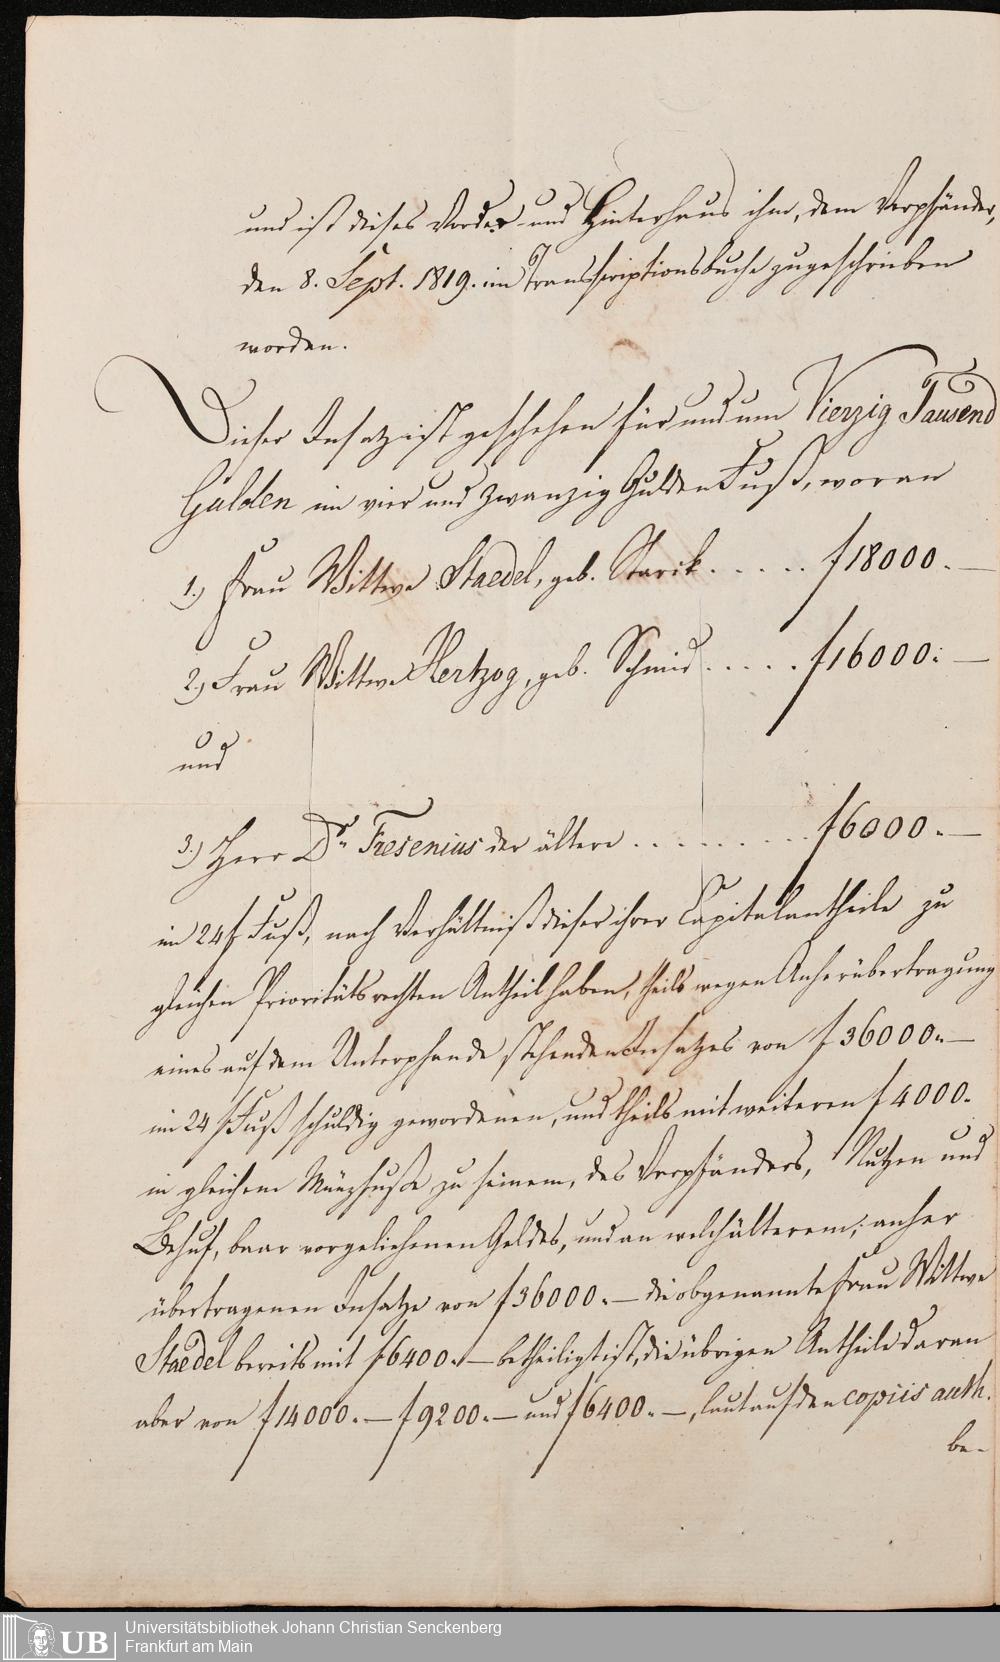 und ist dieses Vorder- und Hinterhaus ihm, dem Verpfänder,
den 8. Sept. 1819. im Transscriptionsbuche zugeschrieben
worden.
Dieser Insatz ist geschehen für und um Vierzig Tausend
Gulden im vier und zwanzig Gulden Fuß, woran
1.) Frau Wittwe Staedel, geb. Starck . . . . . f 18000. —
2.) Frau Wittwe Hertzog, geb. Schmid . . . . . f 16000. —
und
3.) Herr Dr. Fresenius der ältere . . . . . . . . f 6000. —
im 24 f Fuß, nach Verhältniß dieser ihrer Capitalantheile zu
gleichen Prioritätsrechten Antheil haben, theils wegen Anherübertragung
eines auf dem Unterpfande stehenden Insatzes von f 36000. —
im 24 f Fuß schuldig gewordenen, und theils mit weiteren f 4000.
in gleichem Münzfuße zu seinem, des Verpfänders, Nutzen und
Behuf, baar vorgeliehenen Geldes, und an welch älterem, anher
übertragenen Insatze von f 36000. — die obgenannte Frau Wittwe
Staedel bereits mit f 6400. — betheiligt ist, die übrigen Antheile daran
aber von f 14000. — f 9200. — und f 6400. —, laut auf den copiis auth.
be-
UB
Universitätsbibliothek Johann Christian Senckenberg
Frankfurt am Main